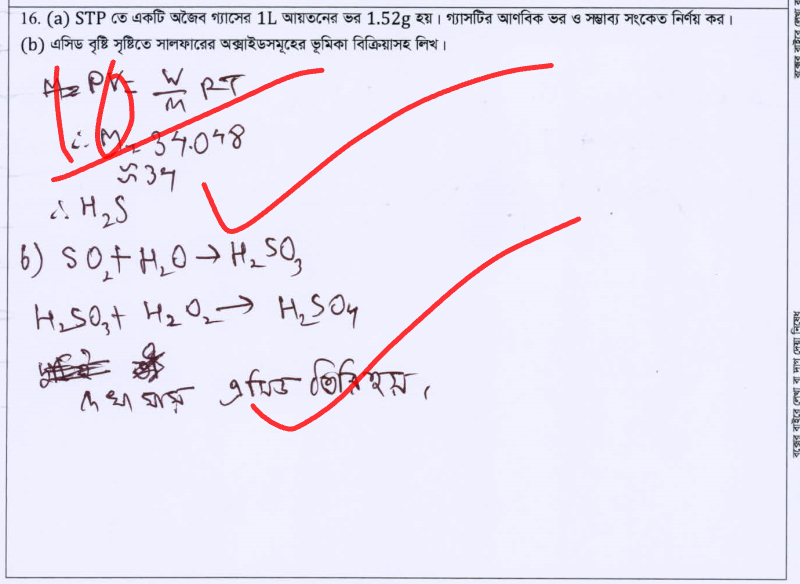 16. (a) STP তে একটি অজৈব গ্যাসের 1L আয়তনের ভর 1.52g হয়। গ্যাসটির আণবিক ভর ও সম্ভাব্য সংকেত নির্ণয় কর।
(b) এসিড বৃষ্টি সৃষ্টিতে সালফারের অক্সাইডসমূহের ভূমিকা বিক্রিয়াসহ লিখ।
PV = W/M RT
∴ M = 34.048
≈ 34
∴ H₂S
b) SO₂ + H₂O → H₂SO₃
H₂SO₃ + H₂O₂ → H₂SO₄
দেখা যায় এসিড তৈরি হয়।
বক্সের বাইরে লেখা বা দাগ দেয়া নিষেধ